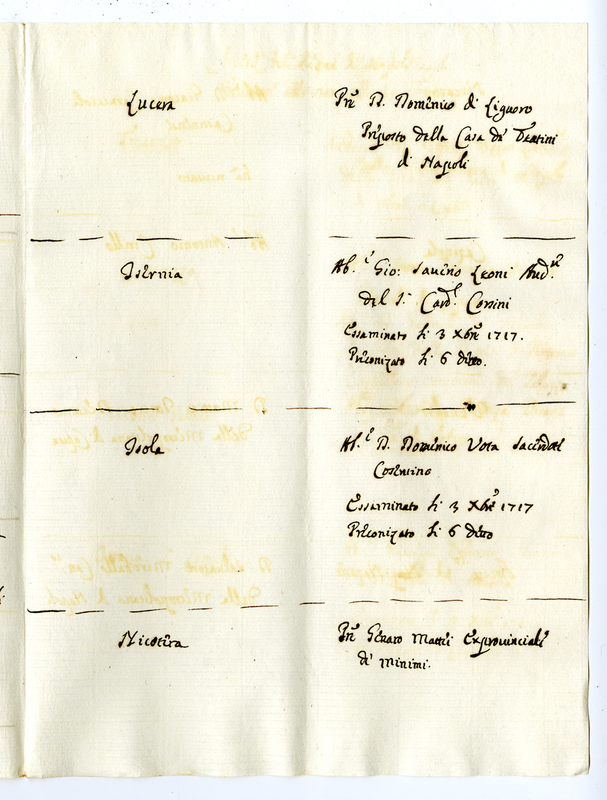 Lucera
Prē D. Domenico di Liguoro
Preposto della Casa de Teatini
di Napoli
Isernia
Ab.ᵉ Gio: Saverio Leoni Aud.ʳᵉ
del S.ʳ Card.ˡ Corsini
Essaminato li 3 Xbrē 1717.
Preconizato li 6 ditto.
Isola
Ab.ᵉ D. Domenico Vota Sacerdote
Cosentino
Essaminato li 3 Xbrē 1717
Preconizato li 6 ditto
Nicotera
Prē Genaro Mattei Exprovinciale
de Minimi.